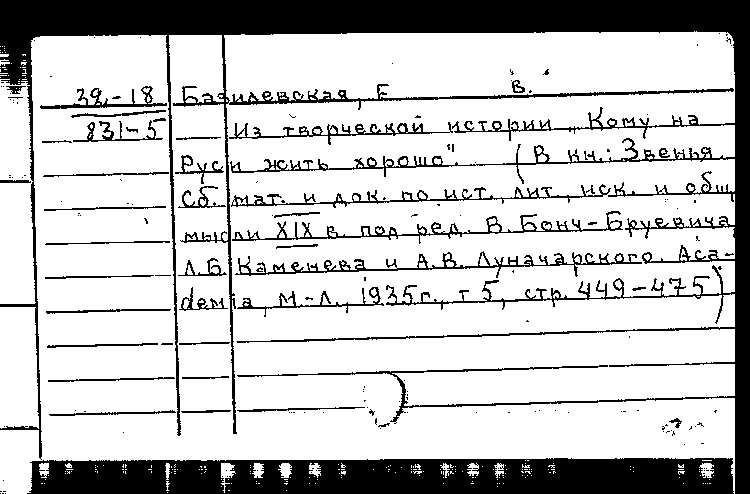 39-18 Базилевская, Е В.
831-5 Из творческой истории „Кому на
Руси жить хорошо". (В кн.: Звенья.
Сб. мат. и док. по ист., лит., иск. и общ.
мысли XIX в. под ред. В. Бонч-Бруевича,
Л.Б. Каменева и А.В. Луначарского. Aca-
demia, М-Л., 1935г., т 5, стр. 449-475)